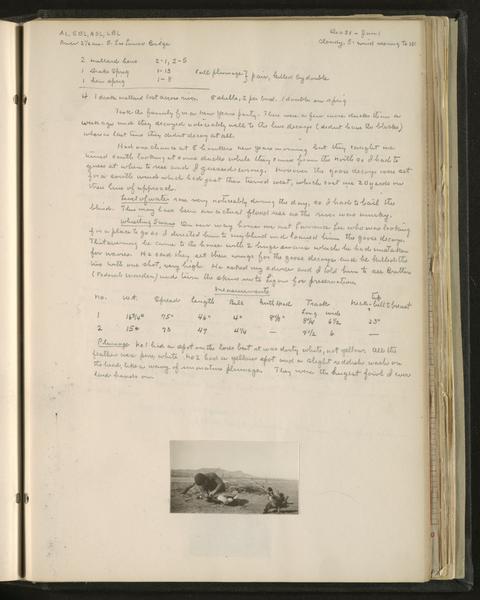 AL, EBL, ASL, LBL
Dec 31 - Jan 1
River 2 1/2 mi. S. Los Lunas Bridge
Cloudy, S. wind
2 mallard hens 2-1, 2-5
1 drake sprig 1-13 (full plumage) } pair, killed by double
1 hen sprig 1-8
4 1 drake mallard lost across river. 8 shells, 2 per bird. 1 double on sprig
Took the family for a new years party. There were a few more ducks than a
week ago and they decoyed noticeably well to the live decoys (didnt have the blocks)
whereas last time they didnt decoy at all.
Had one chance at 8 honkers new years morning but they caught me
turned south looking at some ducks while they came from the north so I had to
guess at when to rise and I guessed wrong. However the goose decoys were set
for a south wind which had just then turned west, which cost me 20 yards on
their line of approach.
Level of water rose very noticeably during the day, so I had to bail the
blind. This may have been an actual flood rise as the river was murky.
Whistling Swans On our way home we met Lawrence Lee who was looking
for a place to go so I directed him to my blind and loaned him the goose decoys.
That evening he came to the house with 2 huge swans which he had mistaken
for snows. He said they set their wings for the goose decoys and he killed the
two with one shot, very high. He asked my advice and I told him to see
(Federal warden) and turn the skins in to Ligon for preservation
Measurements
No. Wt. Spread Length Bill Width Head Tracks
Long wide
1 75" 46" 4" 6 1/2 23"
2 15# 73 47 4 1/4 — 6 —
Plumage No 1 had a spot on the lores but it was dirty white, not yellow. All the
feathers were pure white. No 2 had a yellow spot and a slight reddish wash on
the head, like a wavey of immature plumage. They were the largest fowl I ever
laid hands on.